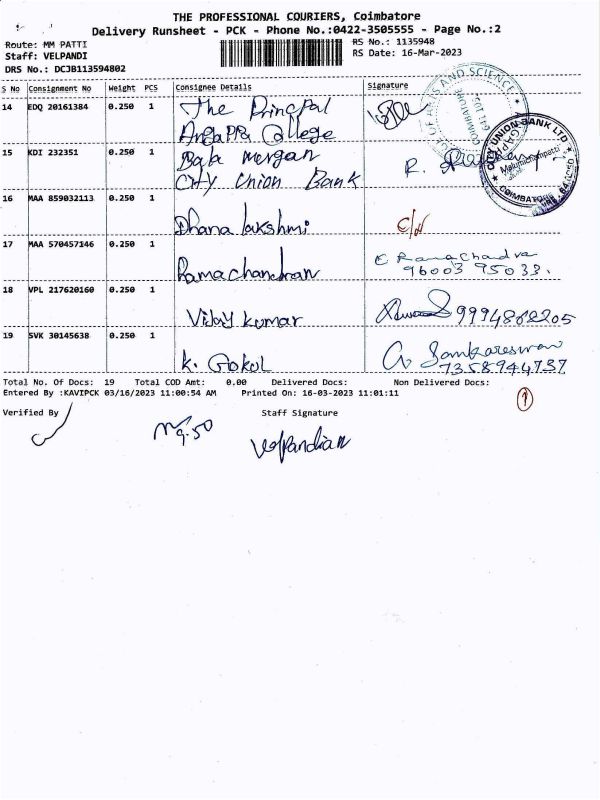 THE PROFESSIONAL COURIERS, Coimbatore
Delivery Runsheet - PCK - Phone No.:0422-3505555 - Page No.:2
Route: MM PATTI RS No.: 1135948
Staff: VELPANDI RS Date: 16-Mar-2023
DRS No.: DCJB113594802
S No Consignment No Weight PCS Consignee Details Signature
14 EDQ 20161384 0.250 1 The Principal
Angappa College
15 KDI 232351 0.250 1 Bala morgan R.
City Union Bank
16 MAA 859032113 0.250 1
Dhana lakshmi
17 MAA 570457146 0.250 1 E Ramachadra
Ramachandran 96003 95033.
18 VPL 217620160 0.250 1
Vijay kumar 9994868205
19 SVK 30145638 0.250 1 Sankareswar
K. Gokul 7358944737
Total No. Of Docs: 19 Total COD Amt: 0.00 Delivered Docs: Non Delivered Docs:
Entered By :KAVIPCK 03/16/2023 11:00:54 AM Printed On: 16-03-2023 11:01:11
Verified By Staff Signature
9.50
Velpandian
ARTS AND SCIENCE
COIMBATORE
CITY UNION BANK LTD
Malumichampatti
COIMBATORE